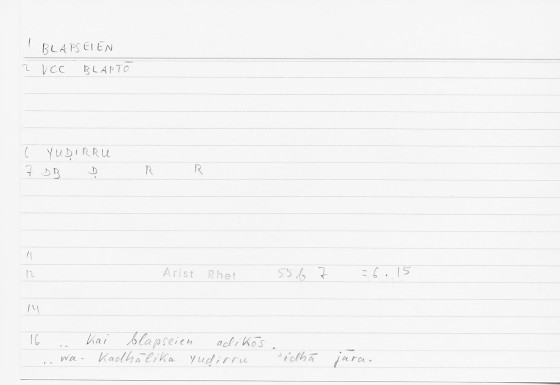 1 BLAPSEIEN
2 VCC BLAPTŌ
6 YUḌIRRU
7 DB Ḍ R R
11
12 Arist Rhet 55b 7 =6.15
14
16 .. kai blapseien adikōs.
.. wa-kadhālika yuḍirru 'idhā jāra.